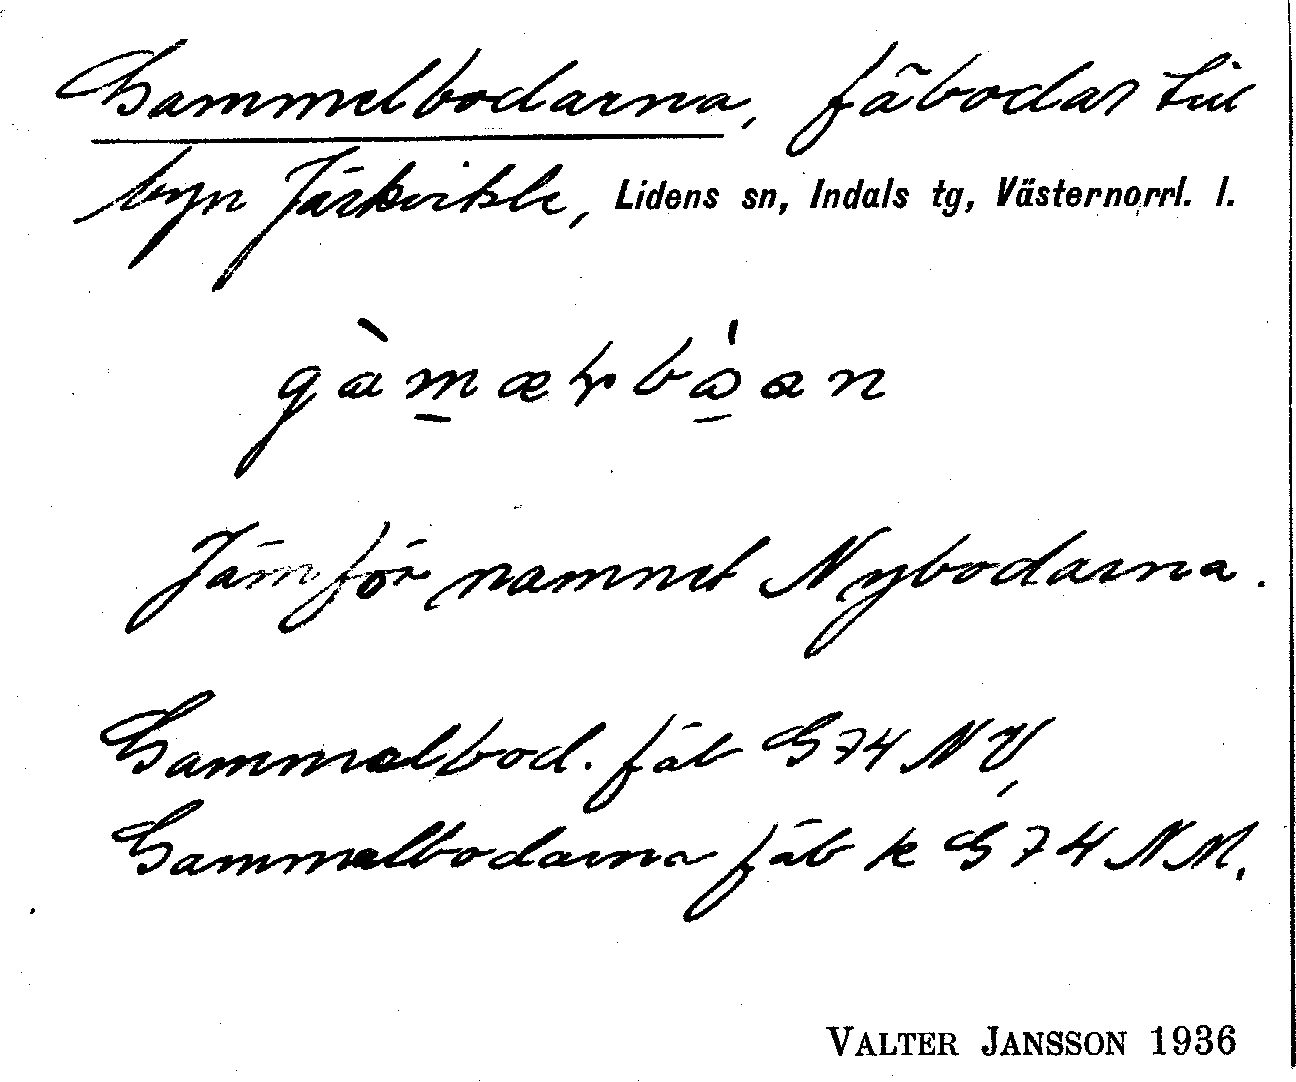 Gammelbodarna, fäbodar till
byn Järkvitsle, Lidens sn, Indals tg, Västernorrl. l.
Jämför namnet Nybodarna.
Gammelbod. fäb G 74 NV,
Gammelbodarna fäb k G 74 NM.
VALTER JANSSON 1936